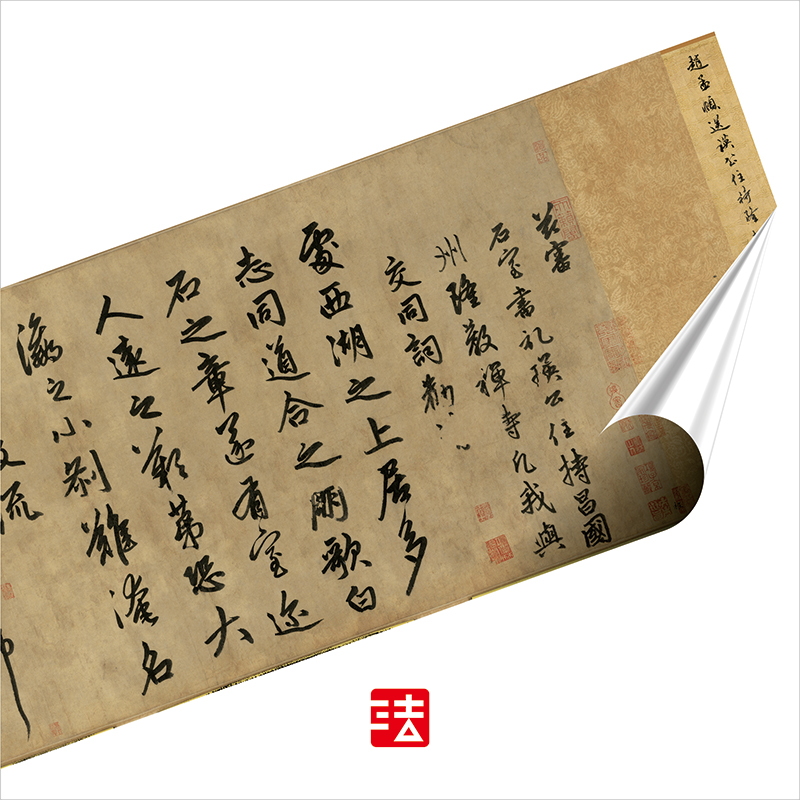 趙孟頫送瑛公住持隆
茲審
石室書記瑛公住持昌國
州隆教禪寺凡我與
交同詞勸
處西湖之上居多
志同道合之朋歌白
石之章遂有室邇
人遠之歎第恐大
瀛之小刹難淹名
流
法